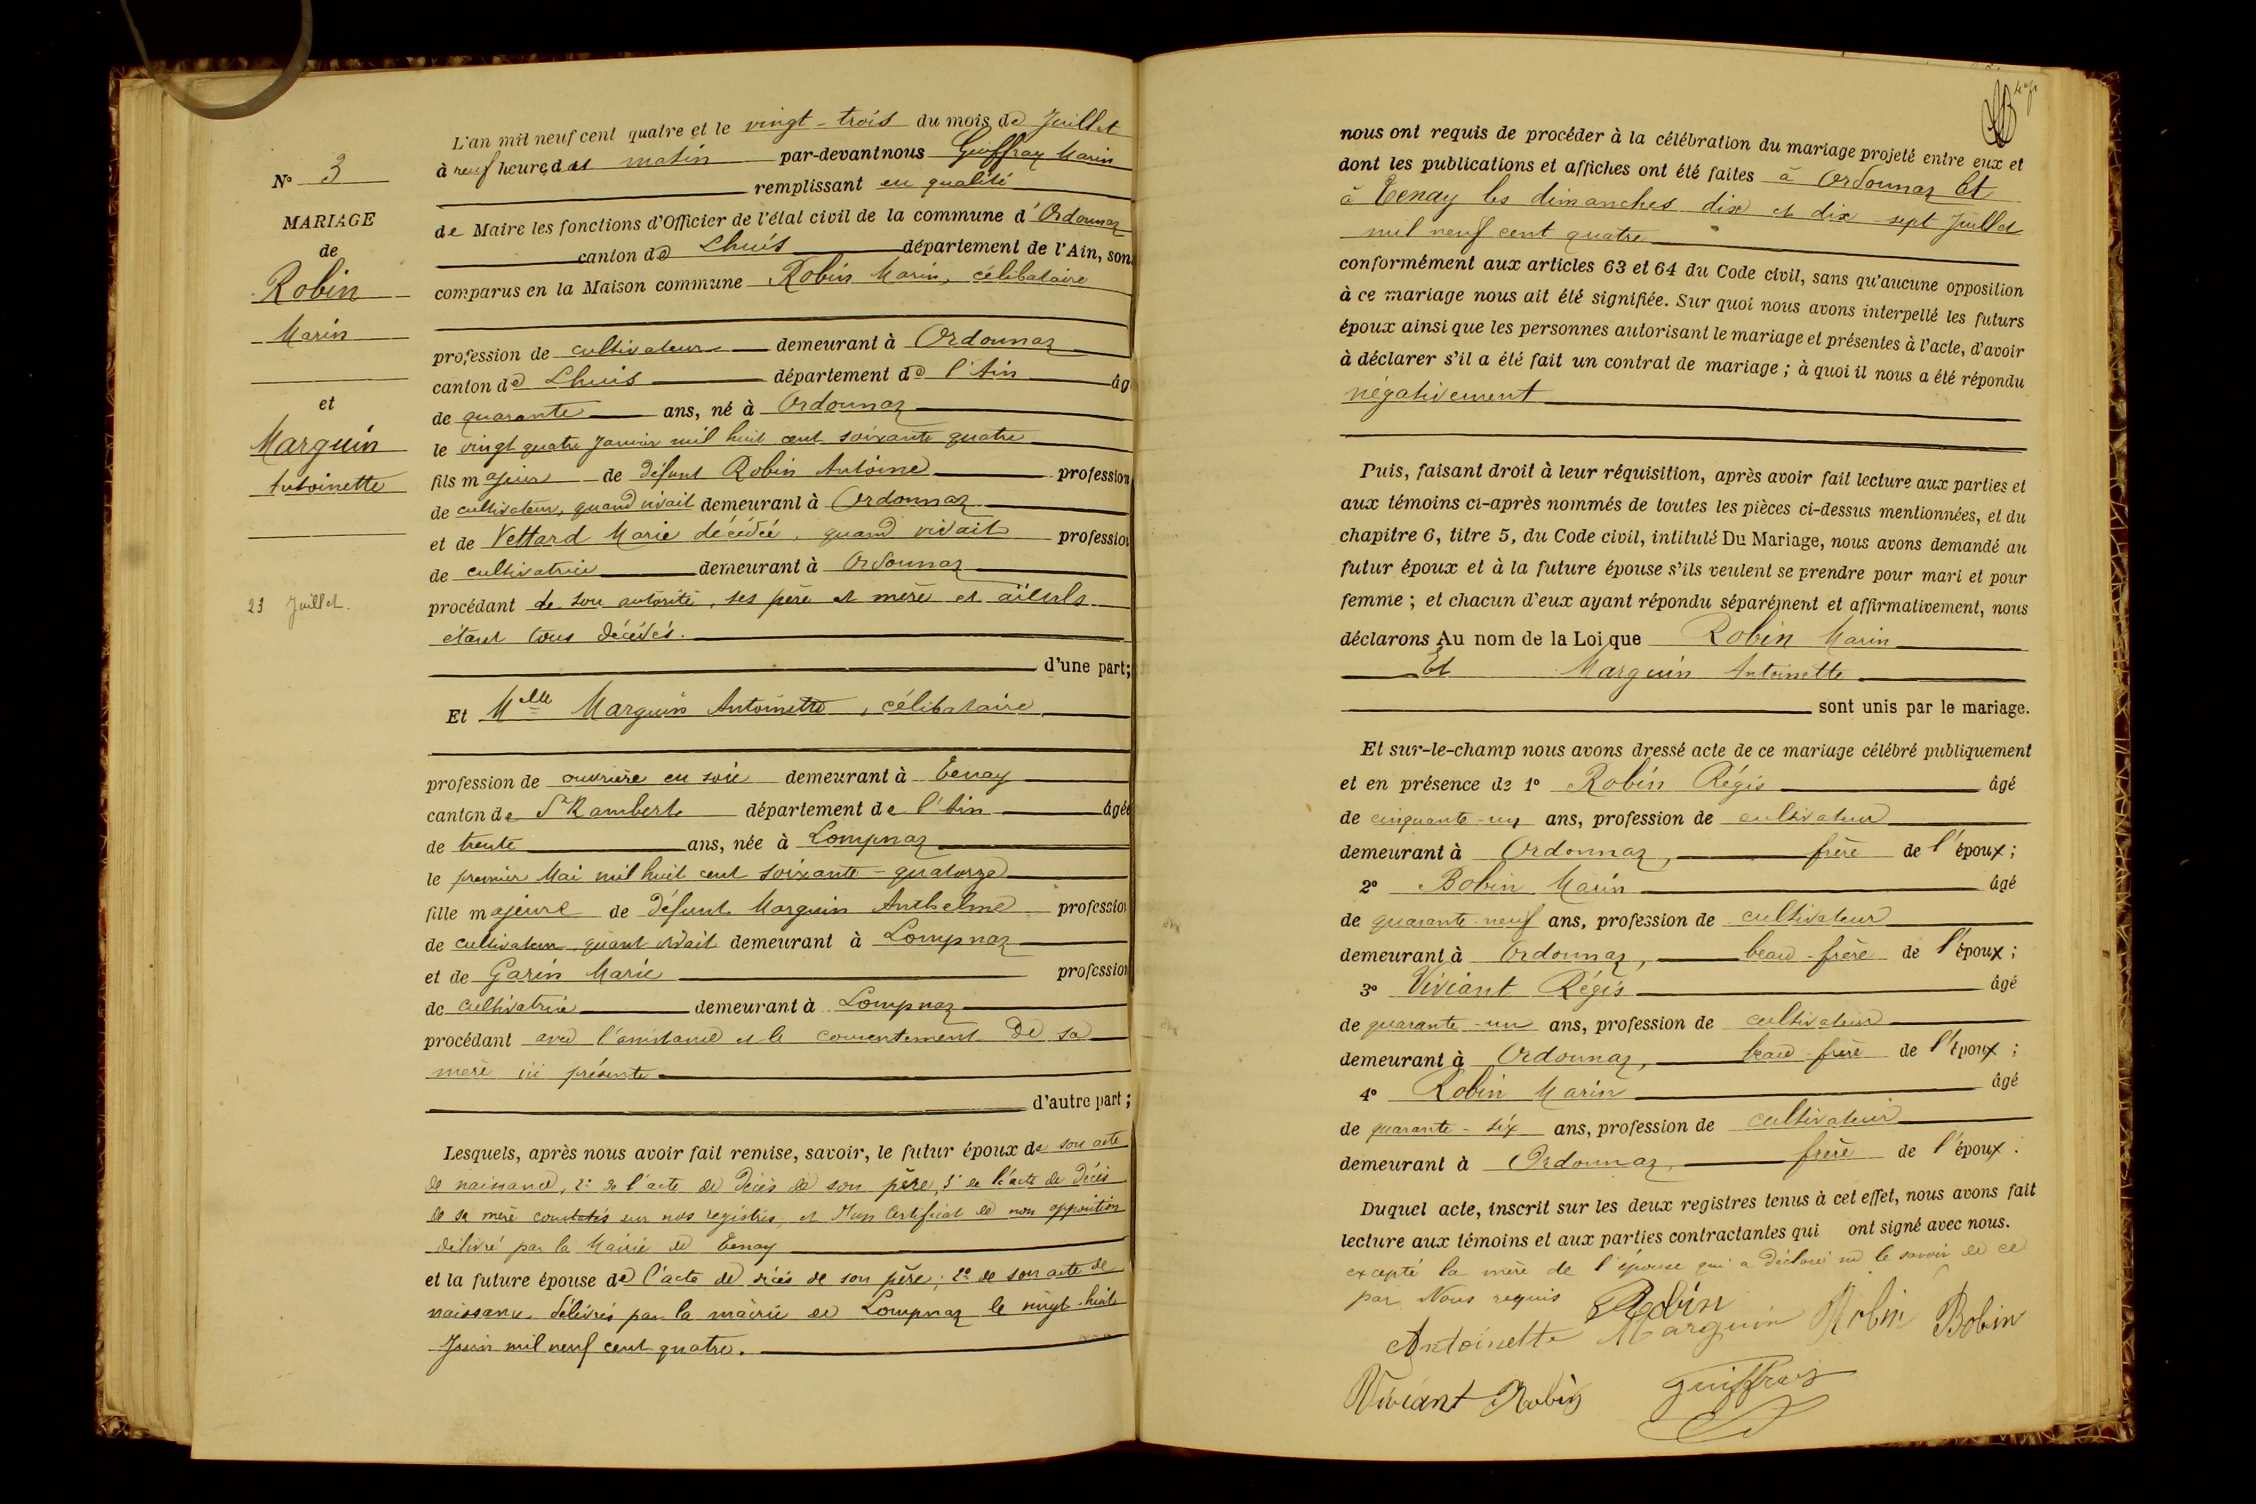 N° 3
MARIAGE
de
Robin
Marin
et
Marguin
Antoinette
23 Juillet.
L'an mil neuf cent quatre et le vingt-trois du mois de Juillet
à neuf heures du matin par-devant nous Geoffray Marin
remplissant en qualité
de Maire les fonctions d'Officier de l'état civil de la commune d'Ordonnaz
canton de Lhuis département de l'Ain, son
comparus en la Maison commune Robin Marin, célibataire
profession de cultivateur demeurant à Ordonnaz
canton de Lhuis département de l'Ain âg
de quarante ans, né à Ordonnaz
le vingt quatre Janvier mil huit cent soixante quatre
fils majeur de défunt Robin Antoine profession
de cultivateur, quand vivait demeurant à Ordonnaz
et de Vettard Marie décédée, quand vivait profession
de cultivatrice demeurant à Ordonnaz
procédant de son autorité, ses père et mère et aïeuls
étant tous décédés.
d'une part;
Et Melle Marguin Antoinette, célibataire
profession de ouvrière en soie demeurant à Tenay
canton de St Rambert département de l'Ain âgée
de trente ans, née à Lompnaz
le premier Mai mil huit cent soixante-quatorze
fille majeure de défunt Marguin Anthelme profession
de cultivateur quant vivait demeurant à Lompnaz
et de Garin Marie profession
de cultivatrice demeurant à Lompnaz
procédant avec l'assistance et le consentement de sa
mère ici présente
d'autre part;
Lesquels, après nous avoir fait remise, savoir, le futur époux de son acte
de naissance, 2° de l'acte de décès de son père, 3° de l'acte de décès
de sa mère constatés sur nos registres, et d'un certificat de non opposition
délivré par la Mairie de Tenay
et la future épouse de l'acte de décès de son père; 2° de son acte de
naissance délivrés par la mairie de Lompnaz le vingt-huit
Juin mil neuf cent quatre.
nous ont requis de procéder à la célébration du mariage projeté entre eux et
dont les publications et affiches ont été faites à Ordonnaz Et
à Tenay les dimanches dix et dix-sept Juillet
mil neuf cent quatre
conformément aux articles 63 et 64 du Code civil, sans qu'aucune opposition
à ce mariage nous ait été signifiée. Sur quoi nous avons interpellé les futurs
époux ainsi que les personnes autorisant le mariage et présentes à l'acte, d'avoir
à déclarer s'il a été fait un contrat de mariage; à quoi il nous a été répondu
négativement
Puis, faisant droit à leur réquisition, après avoir fait lecture aux parties et
aux témoins ci-après nommés de toutes les pièces ci-dessus mentionnées, et du
chapitre 6, titre 5, du Code civil, intitulé Du Mariage, nous avons demandé au
futur époux et à la future épouse s'ils veulent se prendre pour mari et pour
femme; et chacun d'eux ayant répondu séparément et affirmativement, nous
déclarons Au nom de la Loi que Robin Marin
Et Marguin Antoinette
sont unis par le mariage.
Et sur-le-champ nous avons dressé acte de ce mariage célébré publiquement
et en présence de 1° Robin Régis âgé
de cinquante-un ans, profession de cultivateur
demeurant à Ordonnaz, frère de l'époux;
2° Bobin Marin âgé
de quarante-neuf ans, profession de cultivateur
demeurant à Ordonnaz, beau-frère de l'époux;
3° Viviant Régis âgé
de quarante-un ans, profession de cultivateur
demeurant à Ordonnaz, beau-frère de l'époux;
4° Robin Marin âgé
de quarante-six ans, profession de cultivateur
demeurant à Ordonnaz, frère de l'époux.
Duquel acte, inscrit sur les deux registres tenus à cet effet, nous avons fait
lecture aux témoins et aux parties contractantes qui ont signé avec nous.
excepté la mère de l'épouse qui a déclaré ne le savoir de ce
par Nous requis Robin
Antoinette Marguin Robin Bobin
Viviant Robin Geoffray